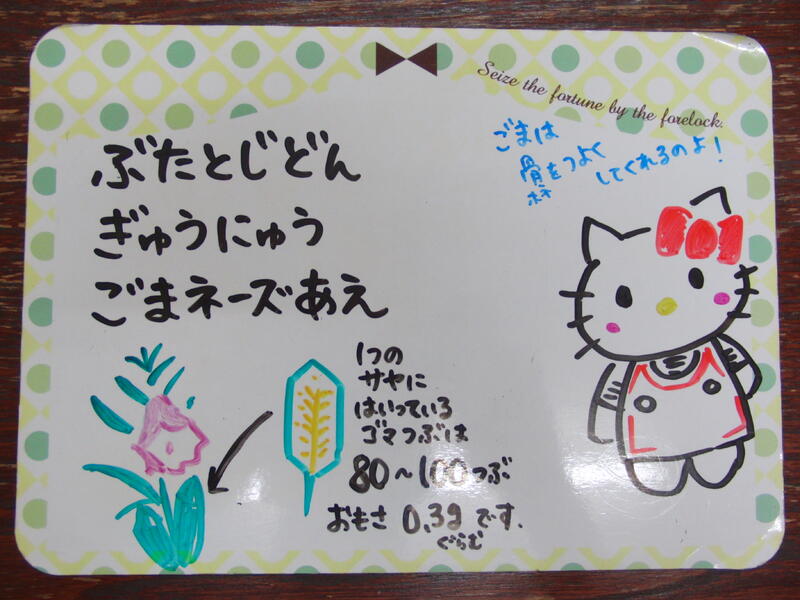 Seize the fortune by the forelock.
ぶたとじどん
ぎゅうにゅう
ごまネーズあえ
ごまは
骨をつよく
ホネ
してくれるのよ!
1つの
サヤに
はいっている
ゴマつぶは
80～100つぶ
おもさ 0.3gです.
ぐらむ